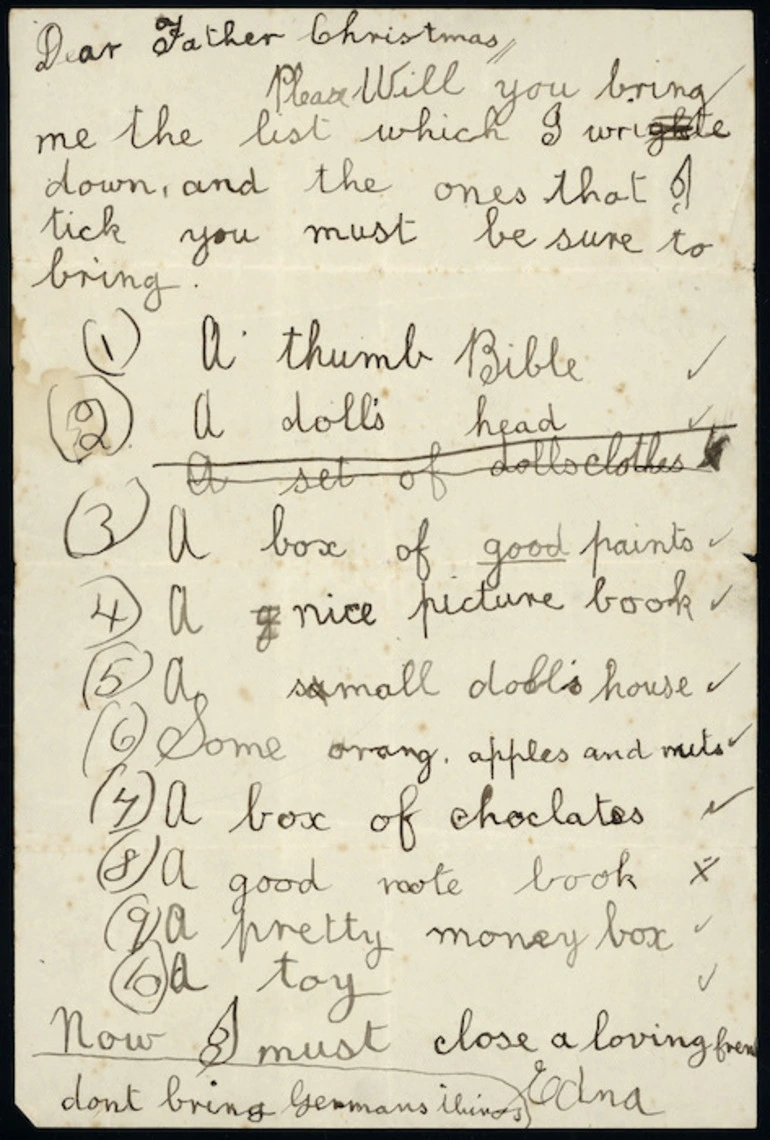 Dear Father Christmas,
Please Will you bring
me the list which I write
down, and the ones that I
tick you must be sure to
bring.
(1) A thumb Bible ✓
(2) A doll's head ✓
A set of dolls clothes
(3) A box of good paints ✓
(4) A nice picture book ✓
(5) A small doll's house ✓
(6) Some orang, apples and nuts ✓
(7) A box of choclates ✓
(8) A good note book x
(9) A pretty money box ✓
(10) A toy ✓
Now I must close a loving fren
dont bring Germans things Edna